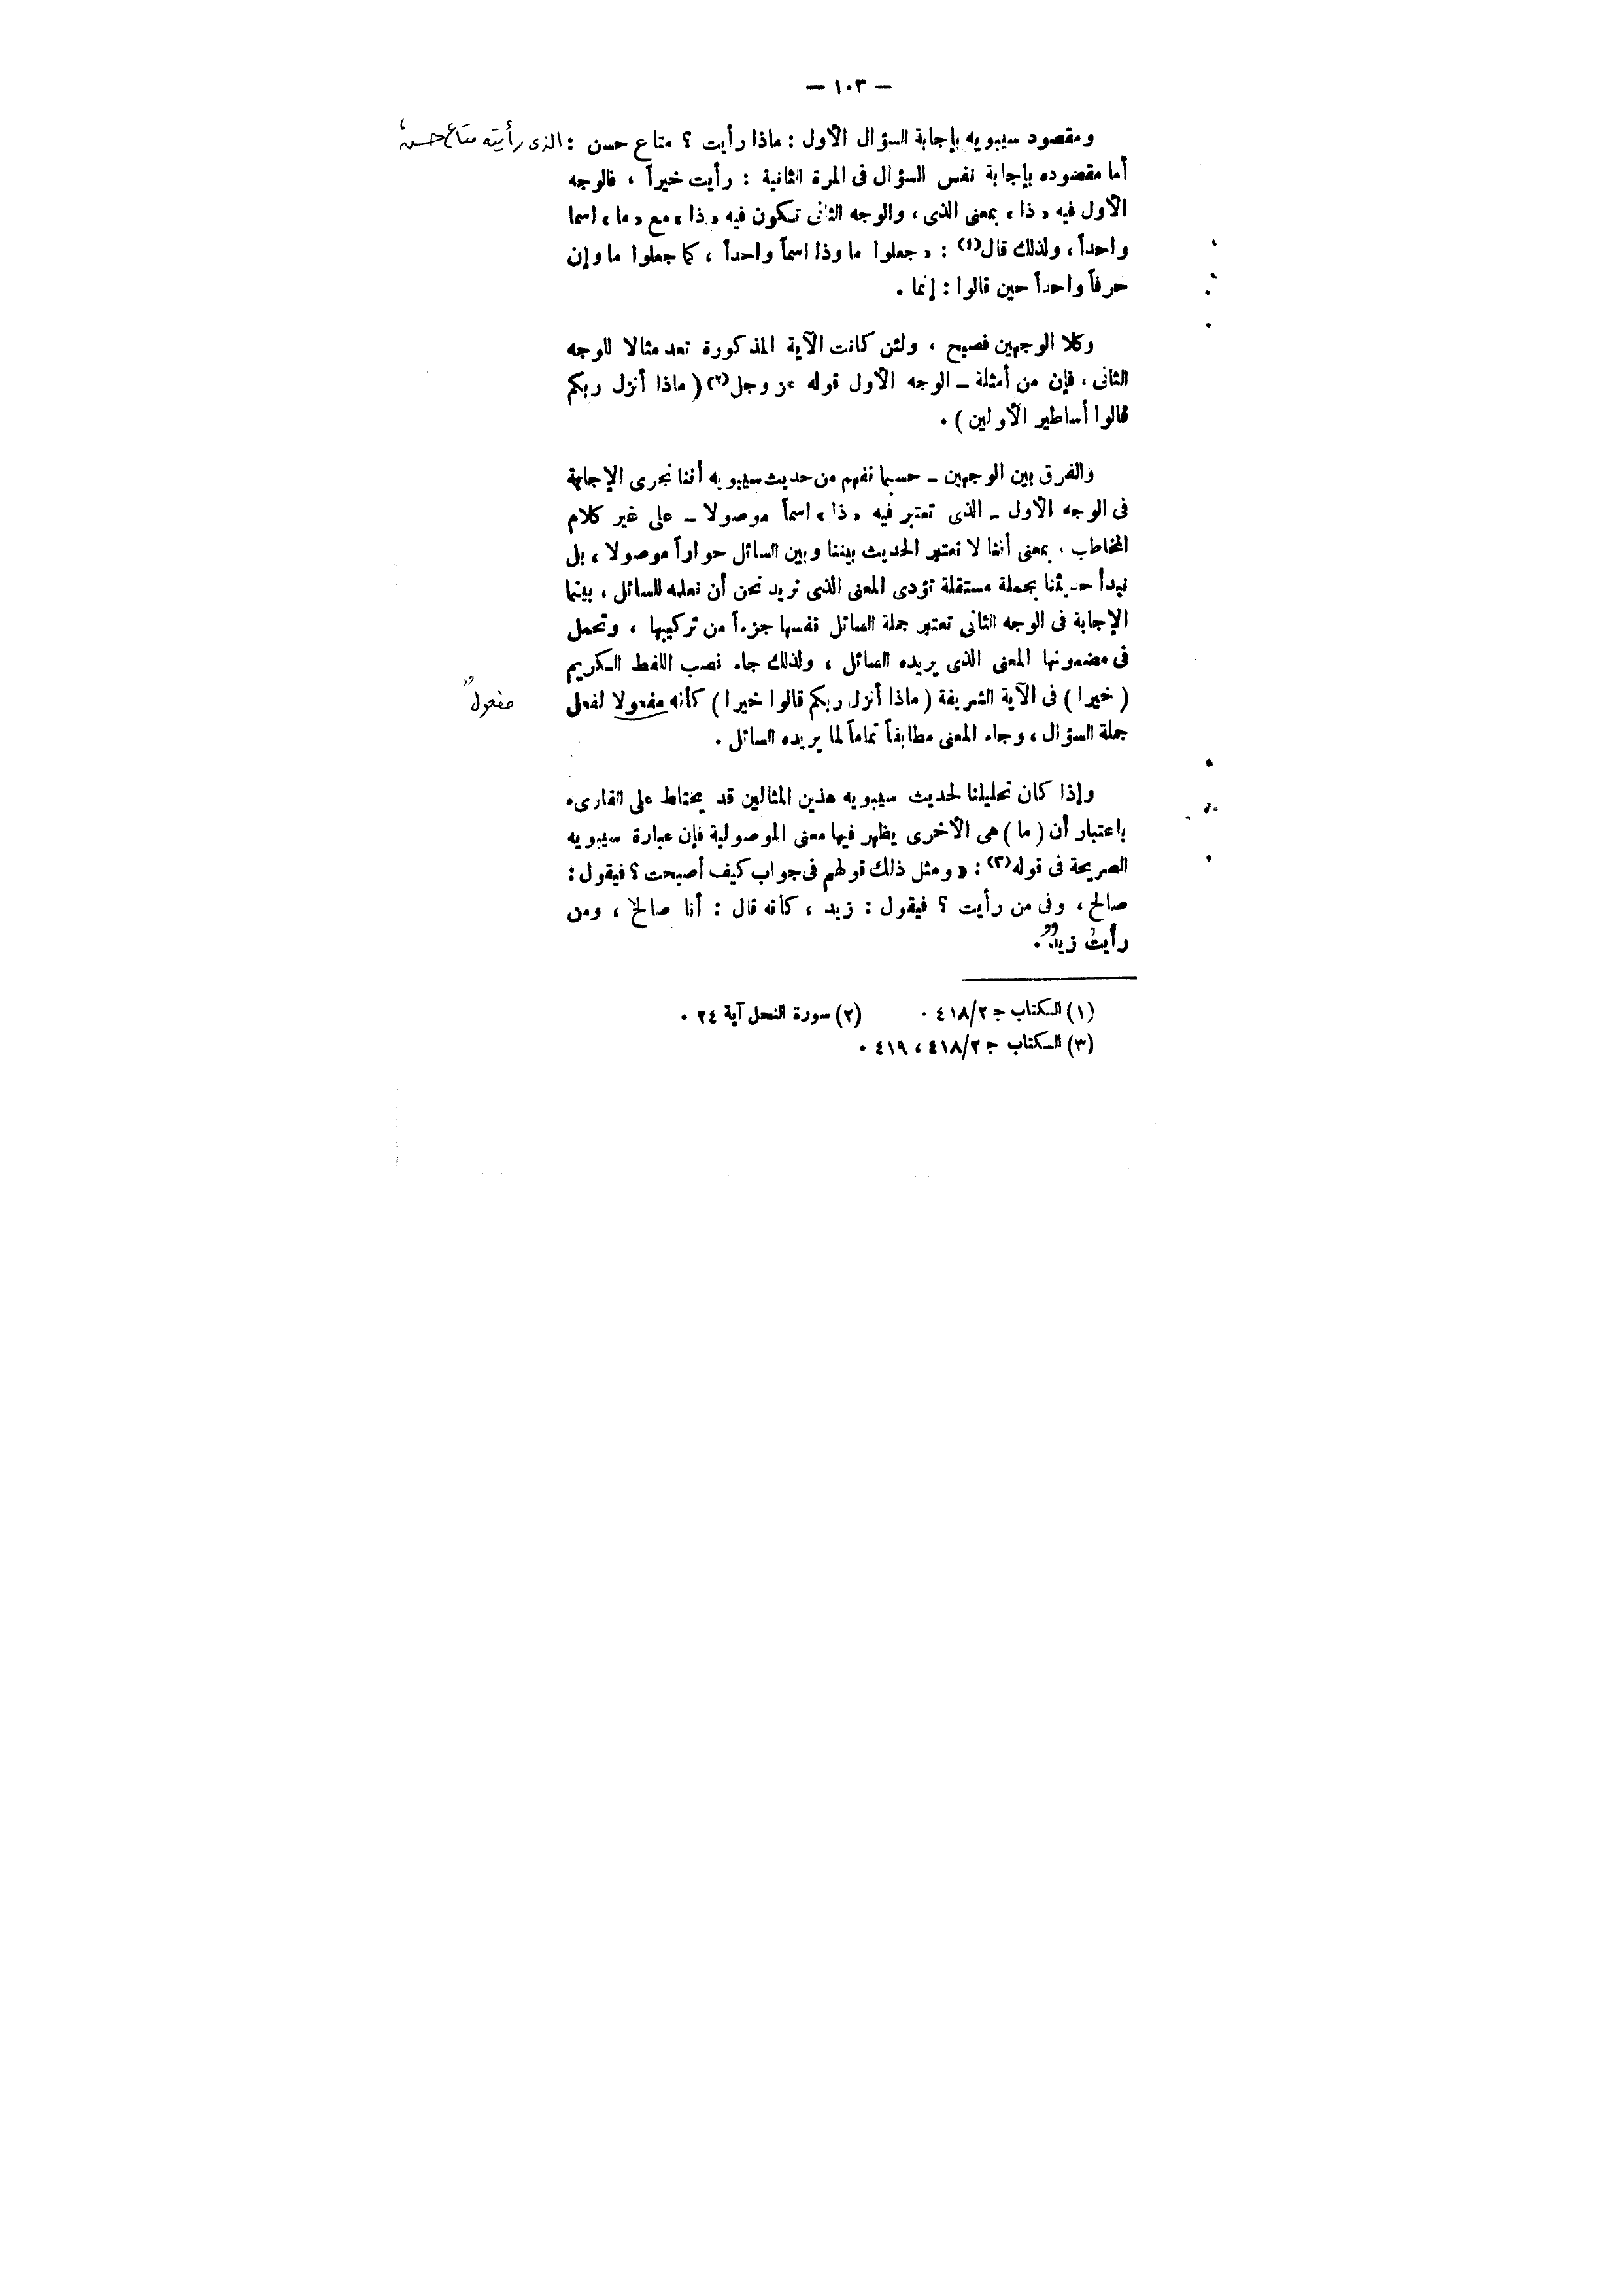 — ١٠٣ —
ومقصود سيبويه بإجابة السؤال الأول : ماذا رأيت ؟ متاع حسن : الذى رأيته متاع حسن
أما مقصوده بإجابة نفس السؤال فى المرة الثانية : رأيت خيراً ، فالوجه
الأول فيه « ذا » بمعنى الذى ، والوجه الثانى تكون فيه « ذا » مع « ما » اسما
واحداً ، ولذلك قال(١) : « جعلوا ما وذا اسماً واحداً ، كما جعلوا ما وإن
حرفاً واحداً حين قالوا : إنما .
وكلا الوجهين فصيح ، ولئن كانت الآية المذكورة تعد مثالا للوجه
الثانى ، فإن من أمثلة — الوجه الأول قوله عز وجل(٢) ( ماذا أنزل ربكم
قالوا أساطير الأولين ) .
والفرق بين الوجهين — حسبما نفهم من حديث سيبويه أننا نجرى الإجابة
فى الوجه الأول — الذى تعتبر فيه « ذا » اسماً موصولا — على غير كلام
المخاطب ، بمعنى أننا لا نعتبر الحديث بيننا وبين السائل حواراً موصولا ، بل
نبدأ حديثنا بجملة مستقلة تؤدى المعنى الذى نريد نحن أن نعلمه للسائل ، بينما
الإجابة فى الوجه الثانى تعتبر جملة السائل نفسها جزءاً من تركيبها ، وتحمل
فى مضمونها المعنى الذى يريده السائل ، ولذلك جاء نصب اللفظ الكريم
( خيرا ) فى الآية الشريفة ( ماذا أنزل ربكم قالوا خيرا ) كأنه مفعولا لفعل
مفعولٌ
جملة السؤال ، وجاء المعنى مطابقاً تماماً لما يريده السائل .
وإذا كان تحليلنا لحديث سيبويه هذين المثالين قد يختلط على القارىء
باعتبار أن ( ما ) هى الأخرى يظهر فيها معنى الموصولية فإن عبارة سيبويه
الصريحة فى قوله(٣) : « ومثل ذلك قولهم فى جواب كيف أصبحت ؟ فيقول :
صالح ، وفى من رأيت ؟ فيقول : زيد ، كأنه قال : أنا صالح ، ومن
رأيت زيدٌ .
(١) الكتاب ج ٤١٨/٢ .
(٢) سورة النحل آية ٢٤ .
(٣) الكتاب ج ٤١٨/٢ ، ٤١٩ .